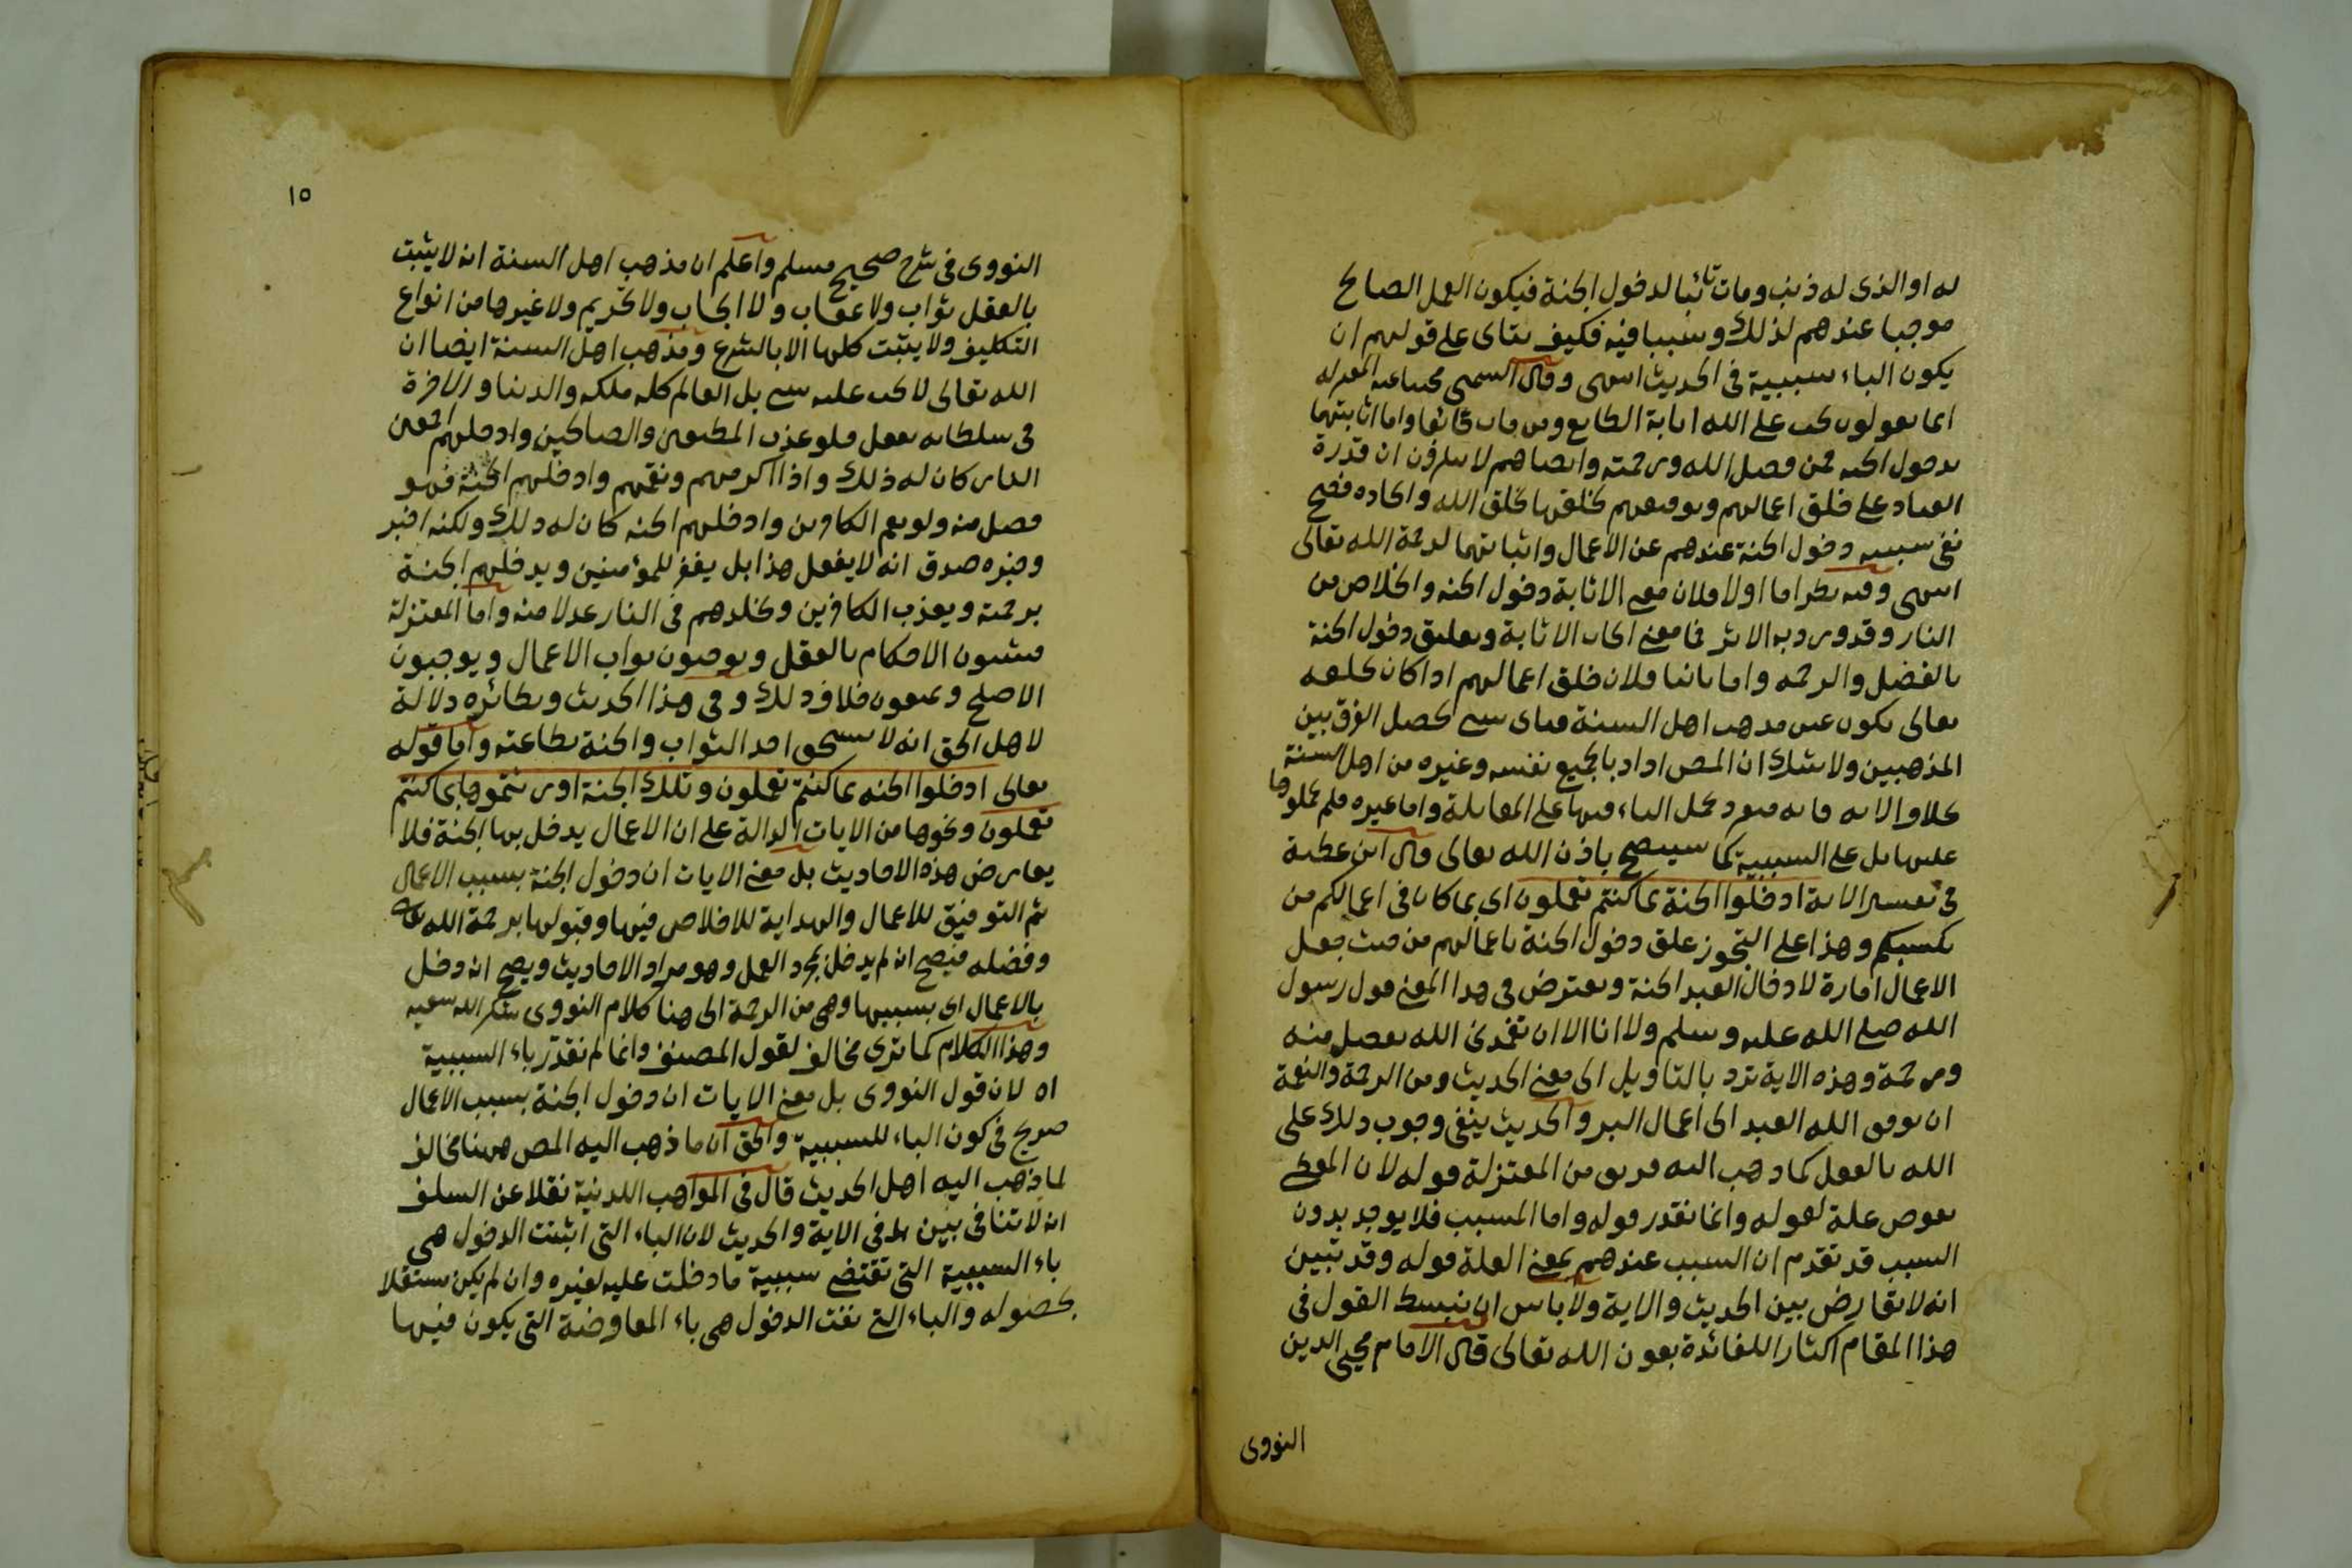 له او الذى له ذنب ومات تائبا لدخول الجنة فيكون العمل الصالح
موجبا عندهم لذلك وسببا فيه فكيف يتاى على قولهم ان
يكون الباء سببية فى الحديث انتهى وقال الشمنى مجيبا عنه المعتزله
انما يقولون يجب على الله اثابة الطايع ومن مات تائبا واما اثابتهما
بدخول الجنه فمن فضل الله ورحمته وايضا هم لا ينكرون ان قدرة
العباد على خلق اعمالهم وتوفيقهم لخلقها بخلق الله وايجاده فصح
نفى سببيه دخول الجنة عندهم عن الاعمال واثباتها لرحمة الله تعالى
انتهى وفيه نظر اما اولا فلان معنى الاثابة دخول الجنه والخلاص من
النار وقد ورد به الاثر فما معنى ايجاب الاثابة وتعليق دخول الجنة
بالفضل والرحمه واما ثانيا فلان خلق اعمالهم اذا كان بخلقه
تعالى يكون عين مذهب اهل السنة فباى شى يحصل الفرق بين
المذهبين ولا شك ان المص اراد بالجميع نفسه وغيره من اهل السنة
كلا والا فانه متفرد بحمل الباء فيها على المقابلة واما غيره فلم يحملوها
عليها بل على السببية كما سيتضح باذن الله تعالى قال ابن عطية
فى تفسير الاية ادخلوا الجنة بما كنتم تعملون اى بما كان فى اعمالكم من
تكسبكم وهذا على التجوز علق دخول الجنة باعمالهم من حيث جعل
الاعمال امارة لادخال العبد الجنة ويعترض فى هذا المعنى قول رسول
الله صلى الله عليه وسلم ولا انا الا ان يتغمدنى الله بفضل منه
ورحمة وهذه الاية ترد بالتاويل الى معنى الحديث ومن الرحمة والنعمة
ان يوفق الله العبد الى اعمال البر والحديث ينفى وجوب ذلك على
الله بالعقل كما ذهب اليه فريق من المعتزلة قوله لان المعطى
بعوض علة لقوله وانما نقدر قوله واما المسبب فلا يوجد بدون
السبب قد تقدم ان السبب عندهم بمعنى العلة قوله وقد تبين
انه لا تعارض بين الحديث والاية ولا باس ان نبسط القول فى
هذا المقام اكثارا للفائدة بعون الله تعالى قال الامام محيى الدين
النووى
١٥
النووى فى شرح صحيح مسلم واعلم ان مذهب اهل السنة انه لا يثبت
بالعقل ثواب ولا عقاب ولا ايجاب ولا تحريم ولا غيرها من انواع
التكليف ولا يثبت كلها الا بالشرع ومذهب اهل السنة ايضا ان
الله تعالى لا يجب عليه شى بل العالم كله ملكه والدنيا والاخرة
فى سلطانه يفعل فلو عذب المطيعين والصالحين وادخلهم اجمعين
النار كان له ذلك واذا اكرمهم ونعمهم وادخلهم الجنة فهو
فضل منه ولو نعم الكافرين وادخلهم الجنه كان له ذلك ولكنه اخبر
وخبره صدق انه لا يفعل هذا بل يغفر للمؤمنين ويدخلهم الجنة
برحمته ويعذب الكافرين ويخلدهم فى النار عدلا منه واما المعتزلة
فيثبتون الاحكام بالعقل ويوجبون ثواب الاعمال ويوجبون
الاصلح ويمنعون خلاف ذلك وفى هذا الحديث ونظائره دلالة
لاهل الحق انه لا يستحق احد الثواب والجنة بطاعته واما قوله
تعالى ادخلوا الجنه بما كنتم تعملون وتلك الجنة اورثتموها بما كنتم
تعملون ونحوها من الايات الدالة على ان الاعمال يدخل بها الجنة فلا
يعارض هذه الاحاديث بل معنى الايات ان دخول الجنة بسبب الاعمال
ثم التوفيق للاعمال والهداية للاخلاص فيها وقبولها برحمة الله تعالى
وفضله فيصح انه لم يدخل بمجرد العمل وهو مراد الاحاديث ويصح انه دخل
بالاعمال اى بسببها وهى من الرحمة الى هنا كلام النووى شكر الله سعيه
وهذا الكلام كما ترى مخالف لقول المصنف وانما لم نقدر باء السببية
اه لان قول النووى بل معنى الايات ان دخول الجنة بسبب الاعمال
صريح فى كون الباء للسببية والحق ان ما ذهب اليه المص ههنا مخالف
لما ذهب اليه اهل الحديث قال فى المواهب اللدنية نقلا عن السلف
انه لا تنافى بين ما فى الاية والحديث لان الباء التى اثبتت الدخول هى
باء السببية التى تقتضى سببية ما دخلت عليه لغيره وان لم يكن مستقلا
بحصوله والباء التى نفت الدخول هى باء المعاوضة التى يكون فيها